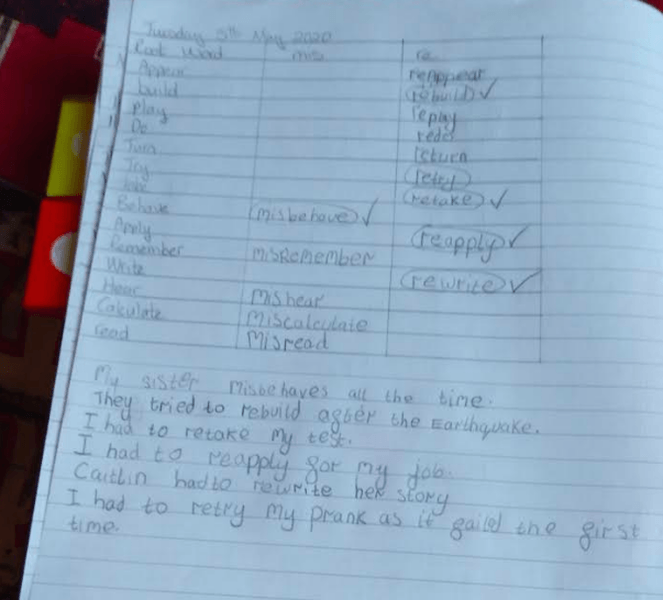 Tuesday 5th May 2020
Root Word mis re
Appear reAppear
build rebuild ✓
Play replay
Do redo
Turn return
Try retry
take retake ✓
Behave misbehave ✓
Apply reapply ✓
Remember misRemember
Write rewrite ✓
Hear Mishear
Calculate Miscalculate
read Misread
My sister Misbehaves all the time.
They tried to rebuild agter the Earthquake.
I had to retake my test.
I had to reapply gor my job.
Caitlin hadto rewrite her story
I had to retry my prank as it gaild the girst
time.